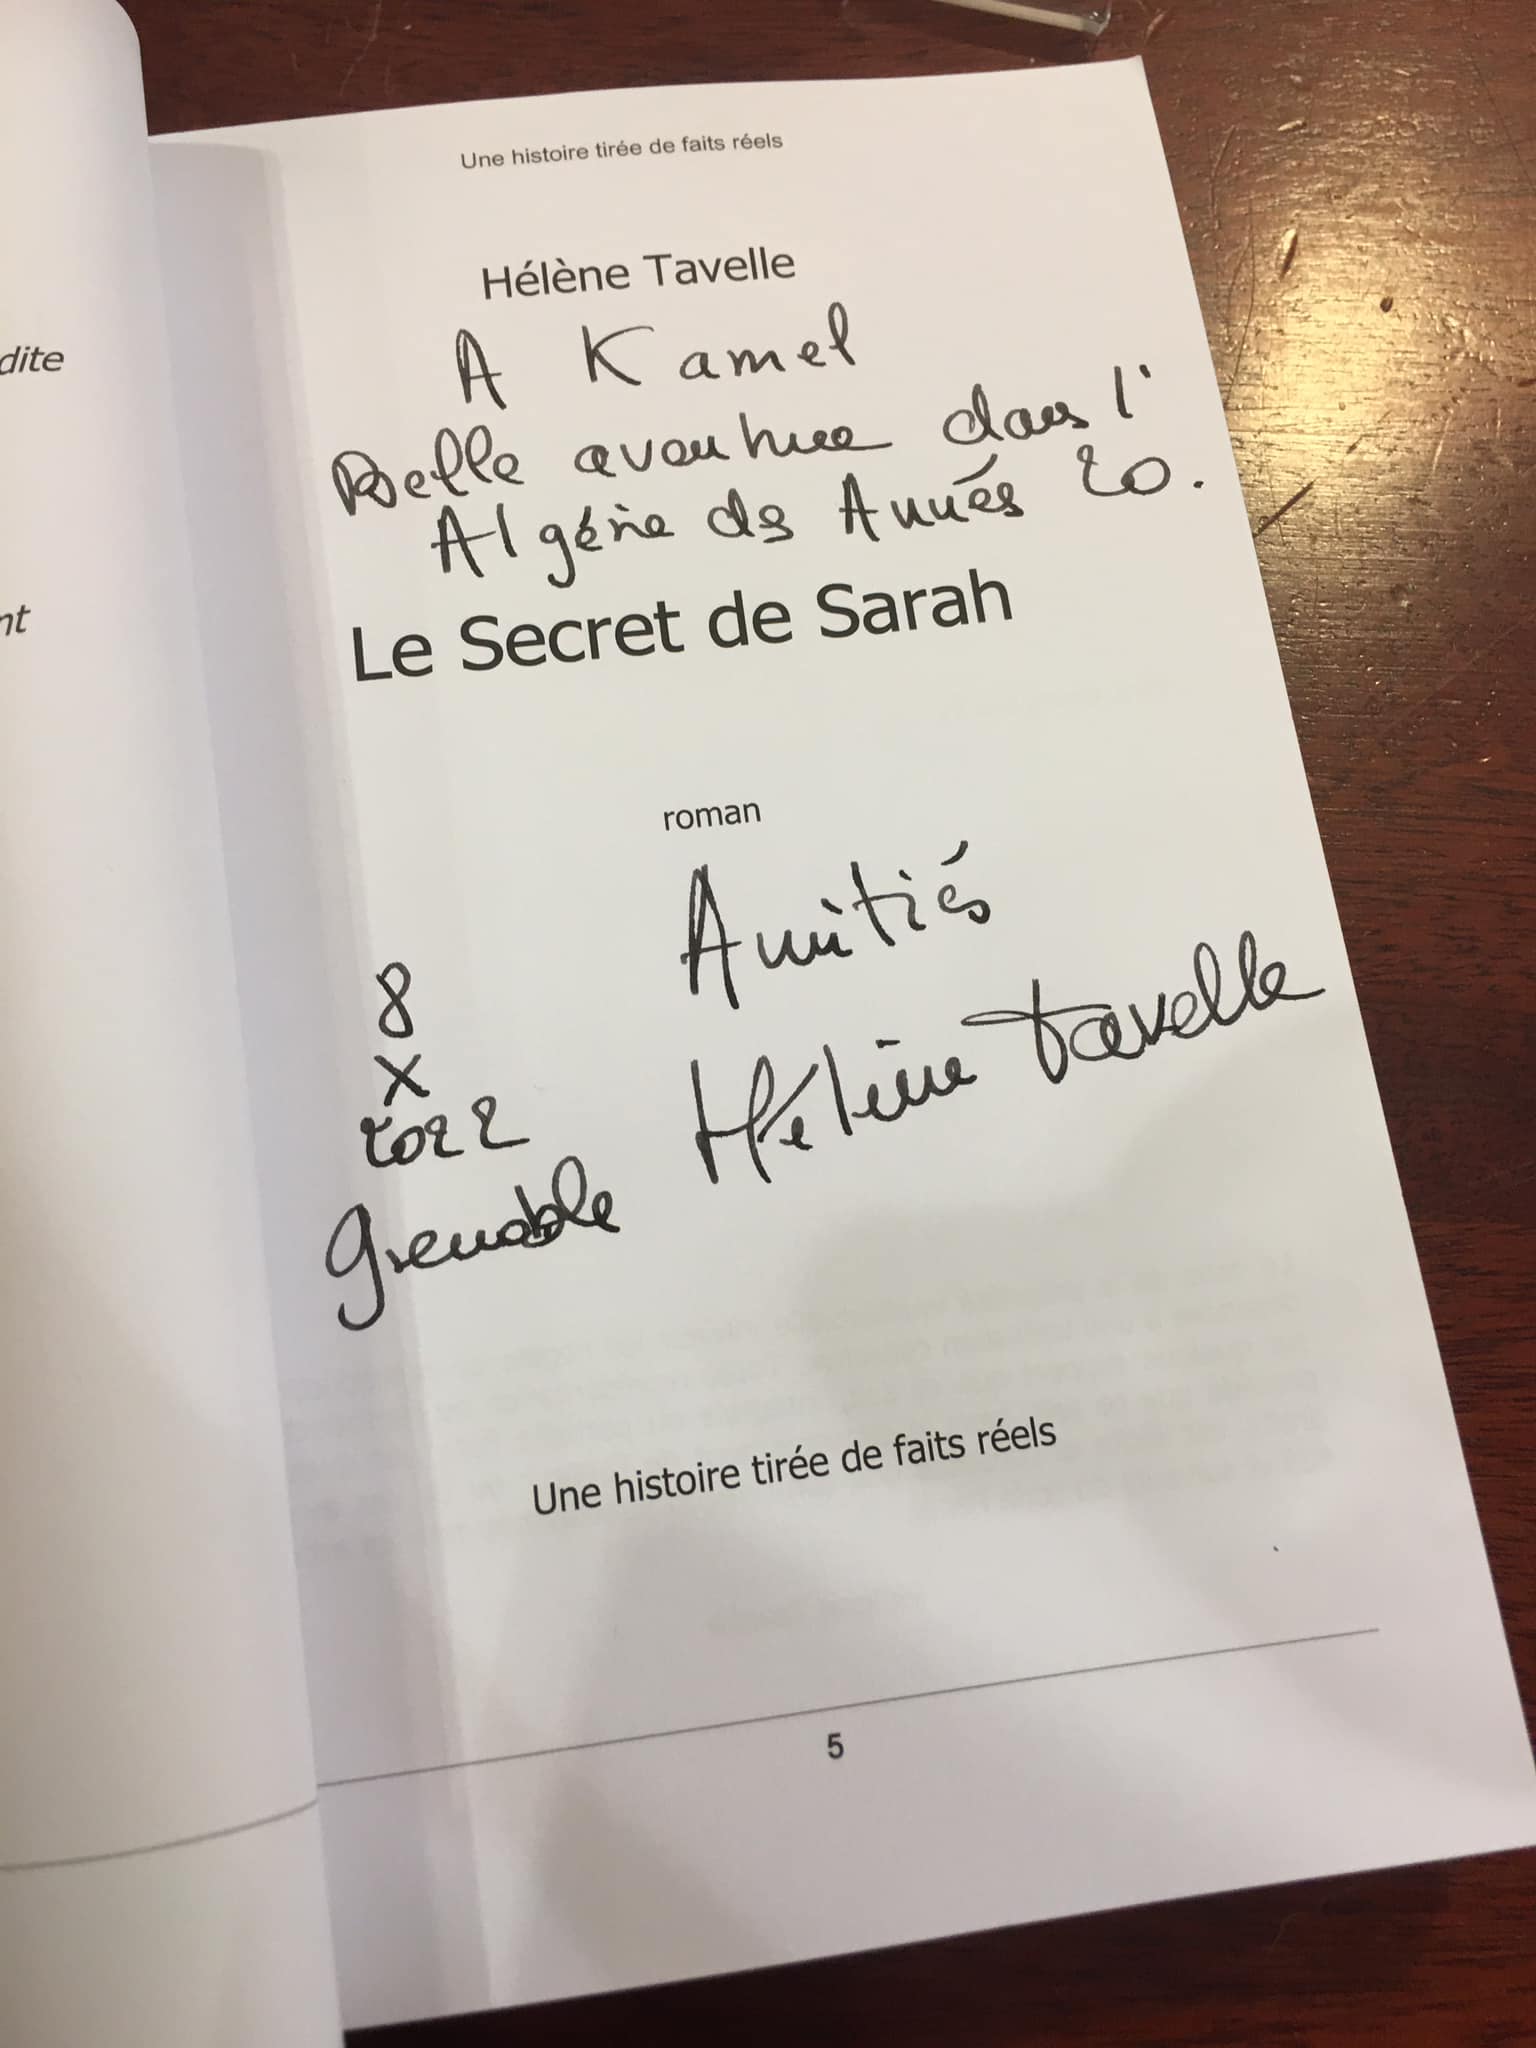 dite
nt
Une histoire tirée de faits réels
Hélène Tavelle
A Kamel
Belle aventure dans l'
Algérie des Années 20.
Le Secret de Sarah
roman
Amitiés
8
X
2022
Grenoble
Hélène Tavelle
Une histoire tirée de faits réels
5